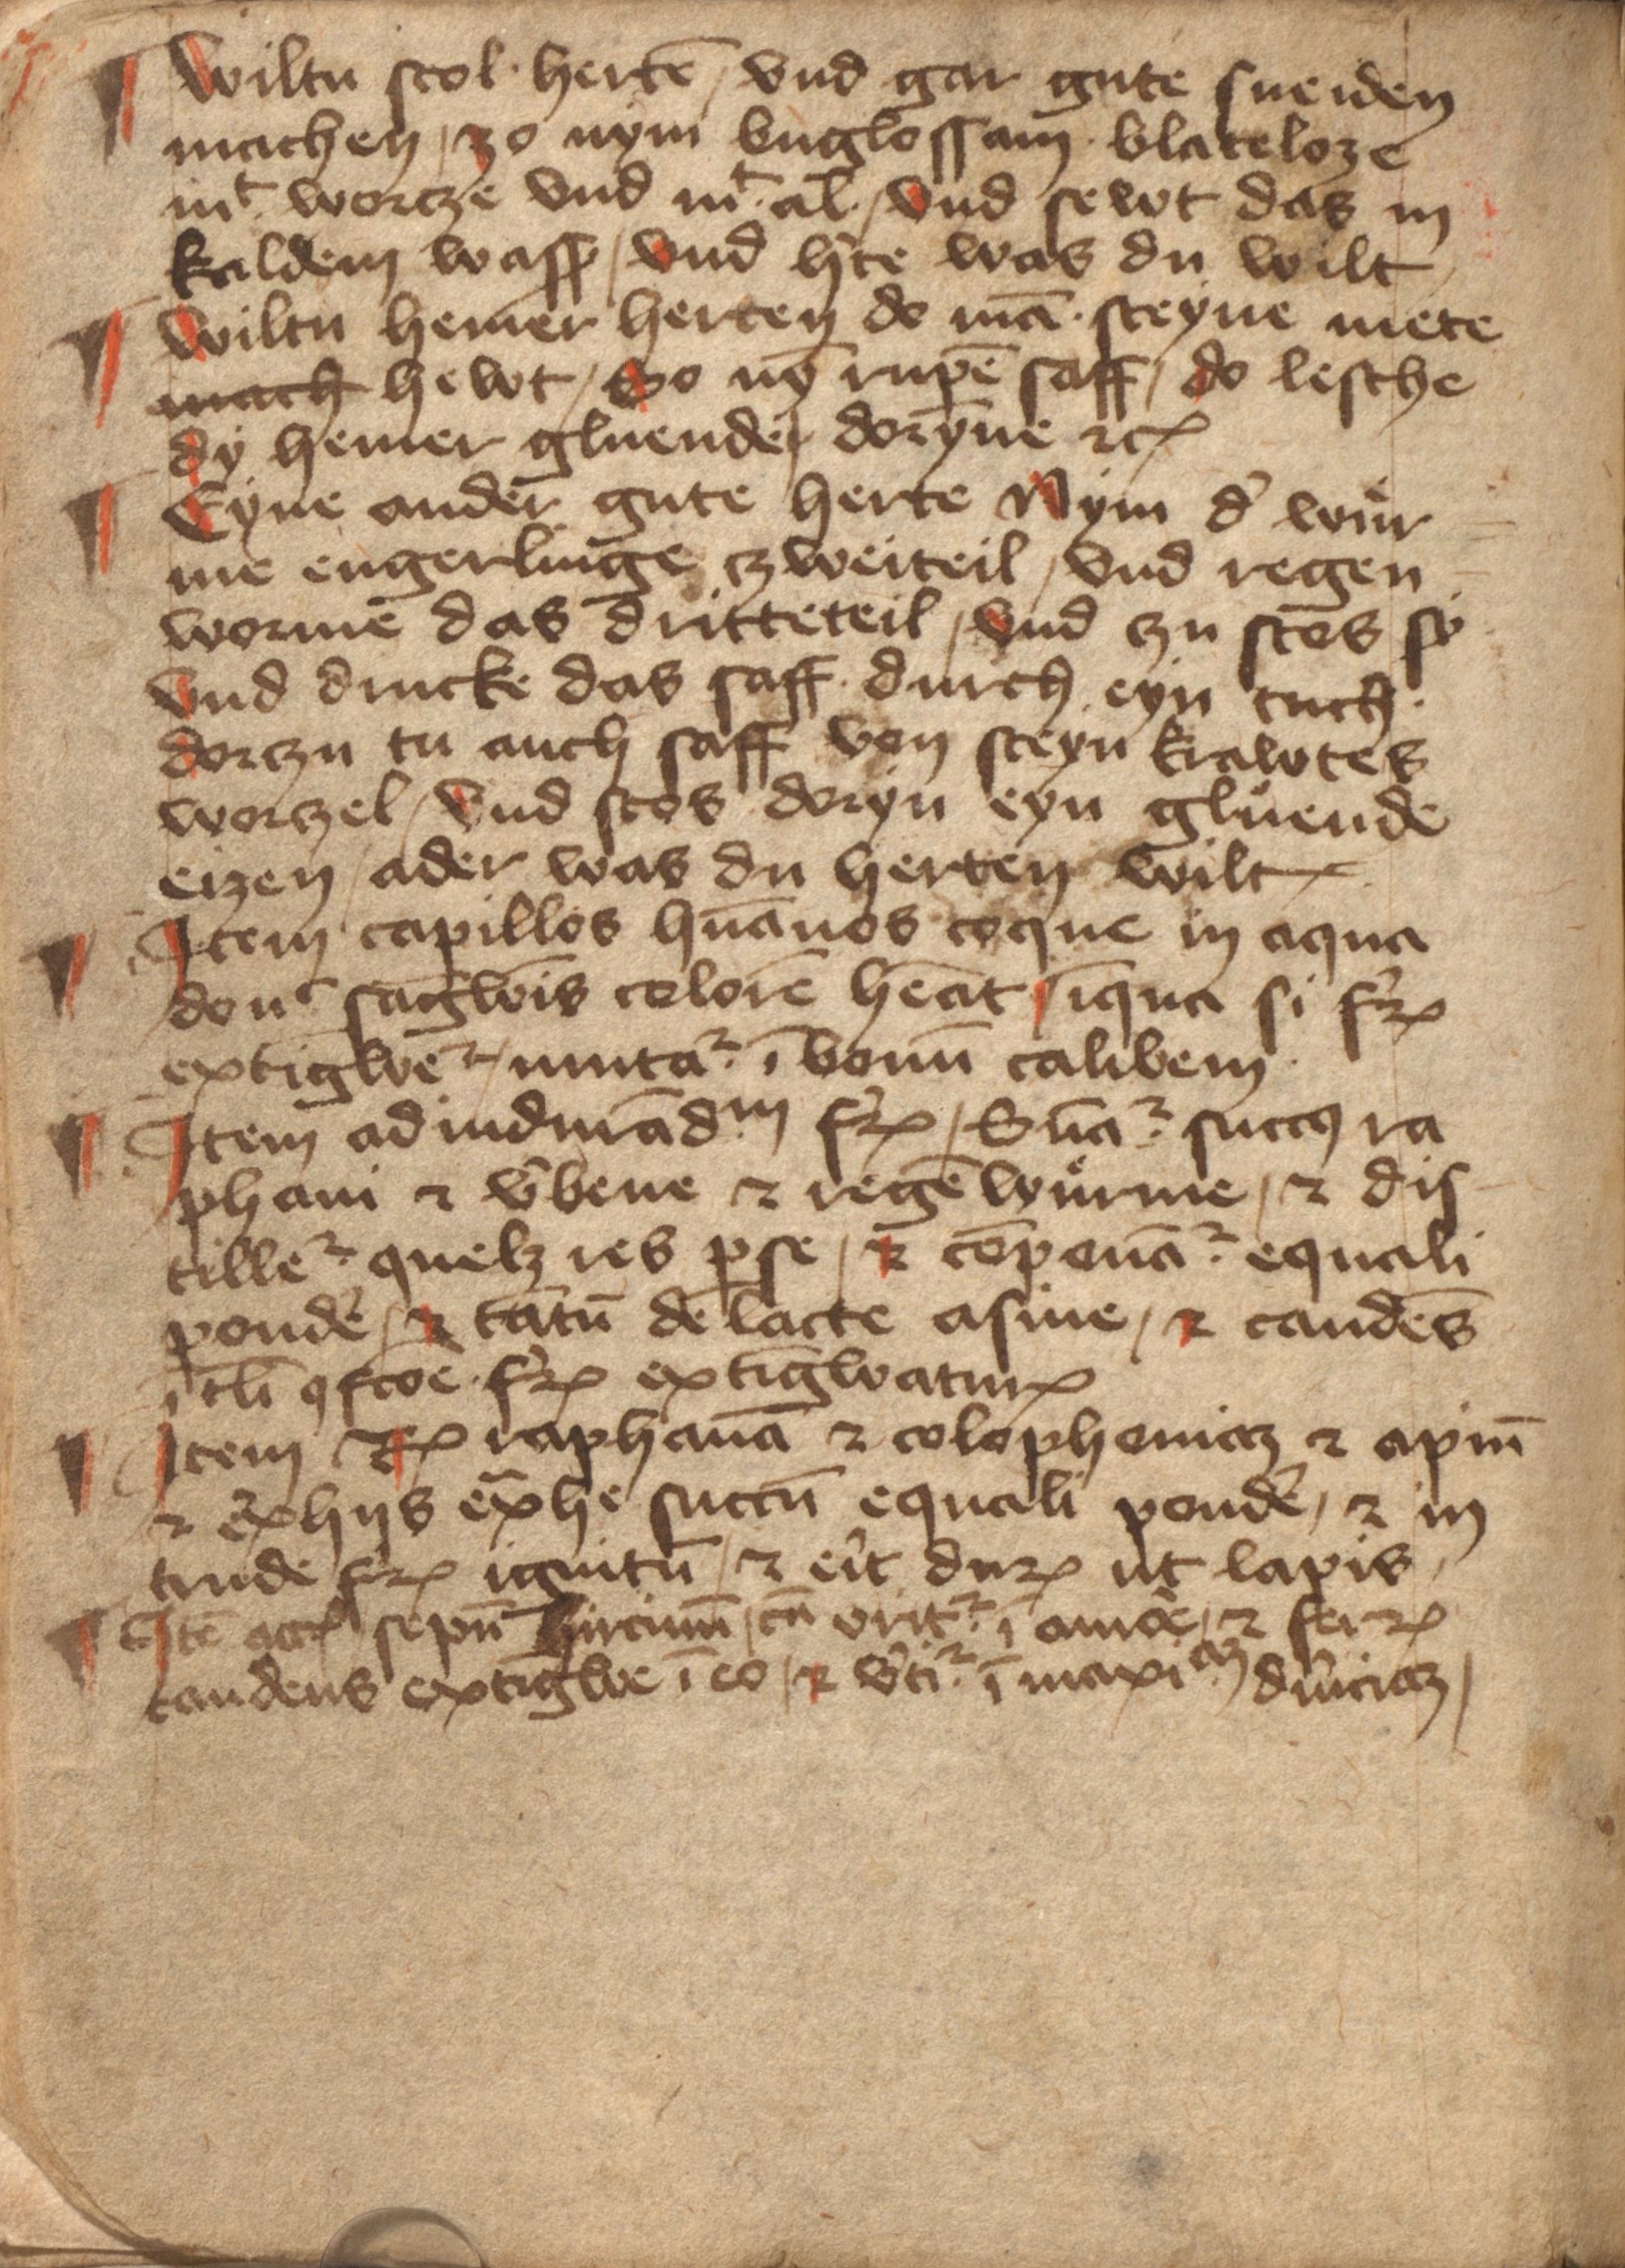 Wiltu stol herte̅ / vnd gar gute sneiden
machen / zo nym buglossam blateloze
mᵗ wortze vnd mᵗ al / vnd sewt das in
kaldem wass̕ / vnd h̕te was du wilt
Wiltu hemer herten do ma̅ steyne mete
mach hewt / So ny̅ rupe̅ saff / do lesche
dy hemer gluende doryne ꝛcꝭ
Eyne ander gute herte Nym d̕ wůr
me engerlinge czweiteil / vnd regen
worme̅ das dritteteil / vnd czu stos sy
vnd drucke das saff durch eyn tuch
dorczu tu auch saff von steyn krawtes
worczel / vnd stos doryn eyn glůende
eizen / ader was du herten wilt
Item capillos hu̅anos coque in aqua
donᶜ sa̅gwi̅s colore̅ hea̅t / i̅qua si fr̕ꝝ
extigwe̅ᷣ / mutaᷣ i̅ bonu̅ calibem
Item ad indura̅dᵘᵐ fr̕ꝝ / Suma̅ᷣ succꝯ ra
phani ⁊ v̕bene ⁊ rege̅ wůrme / ⁊ dis
tilleᷣ quelꝫ res ꝑse / ⁊ co̅pona̅ᷣ equali
ponde̕ / ⁊ ta̅tu̅ de lacte asine / ⁊ cande̅s
i̅ tli̅ ꝯfco̅e fr̕ꝝ exti̅gwatur
Item Rꝝ raphana̅ ⁊ colophoniaꝫ ⁊ apiu̅
⁊ ex̕ hijs ex̅he succu̅ equali ponde̕ / ⁊ in
trude fr̕ꝝ ignitu̅ / ⁊ er̕it durꝝ ut lapis
Ite̅ accꝭ sepu̅ hircinu̅ / cu̅ vri̅ᷣ i̅ amo̅e / ⁊ ferꝝ
candens exti̅gwe i̅ eo / ⁊ v̕tiᷣ i̅ maxiᵃꝫ du̕iciaꝫ /